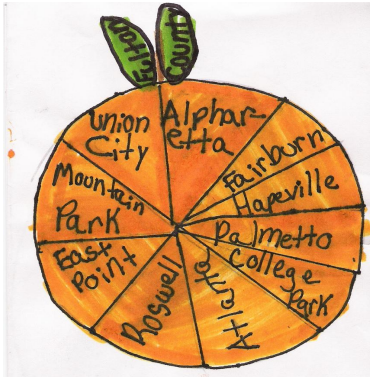 Fulton
County
Union
City
Alphar-
etta
Fairburn
Hapeville
Palmetto
College
Park
Atlanta
Roswell
East
Point
Mountain
Park